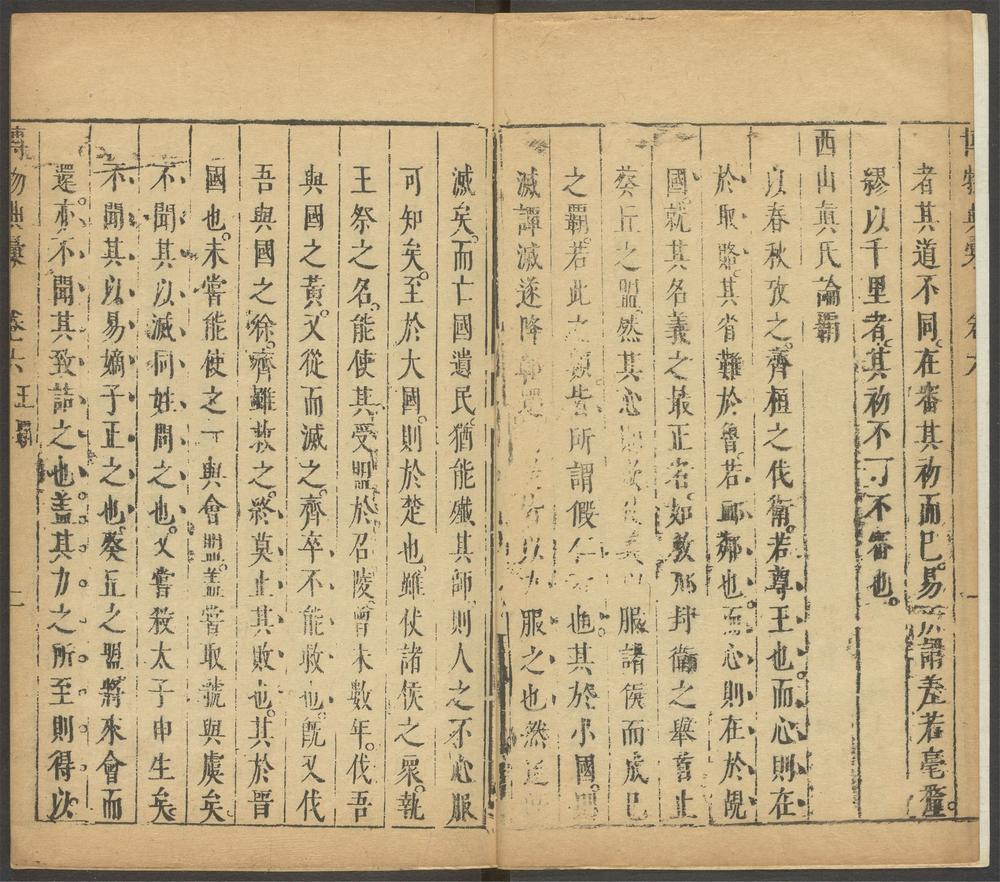 者其道不同在審其初而已易所謂差若毫釐
繆以千里者其初不可不審也
西山真氏論霸
以春秋攷之齊桓之伐衛若尊王也而心則在
於取賂其省難於魯若卹鄰也而心則在於覘
國就其名義之最正名如救邢封衛之舉首止
葵丘之盟然其心 服諸侯而成已
之霸若此之類皆所謂假 也其於小國
滅譚滅遂降 服之也然
滅矣而亡國遺民猶能殲其師則人之不心服
可知矣至於大國則於楚也雖仗諸侯之眾執
王祭之名能使其受盟於召陵曾未數年伐吾
與國之黃又從而滅之齊卒不能救也既又伐
吾與國之徐齊雖救之終莫止其敗也其於晉
國也未嘗能使之一與會盟盖嘗取虢與虞矣
不聞其以滅同姓問之也又嘗殺太子申生矣
不聞其以易嫡子正之也葵丘之盟將來會而
還亦不聞其致詰之也盖其力之所至則得以
博物典彙 卷六 王霸 二